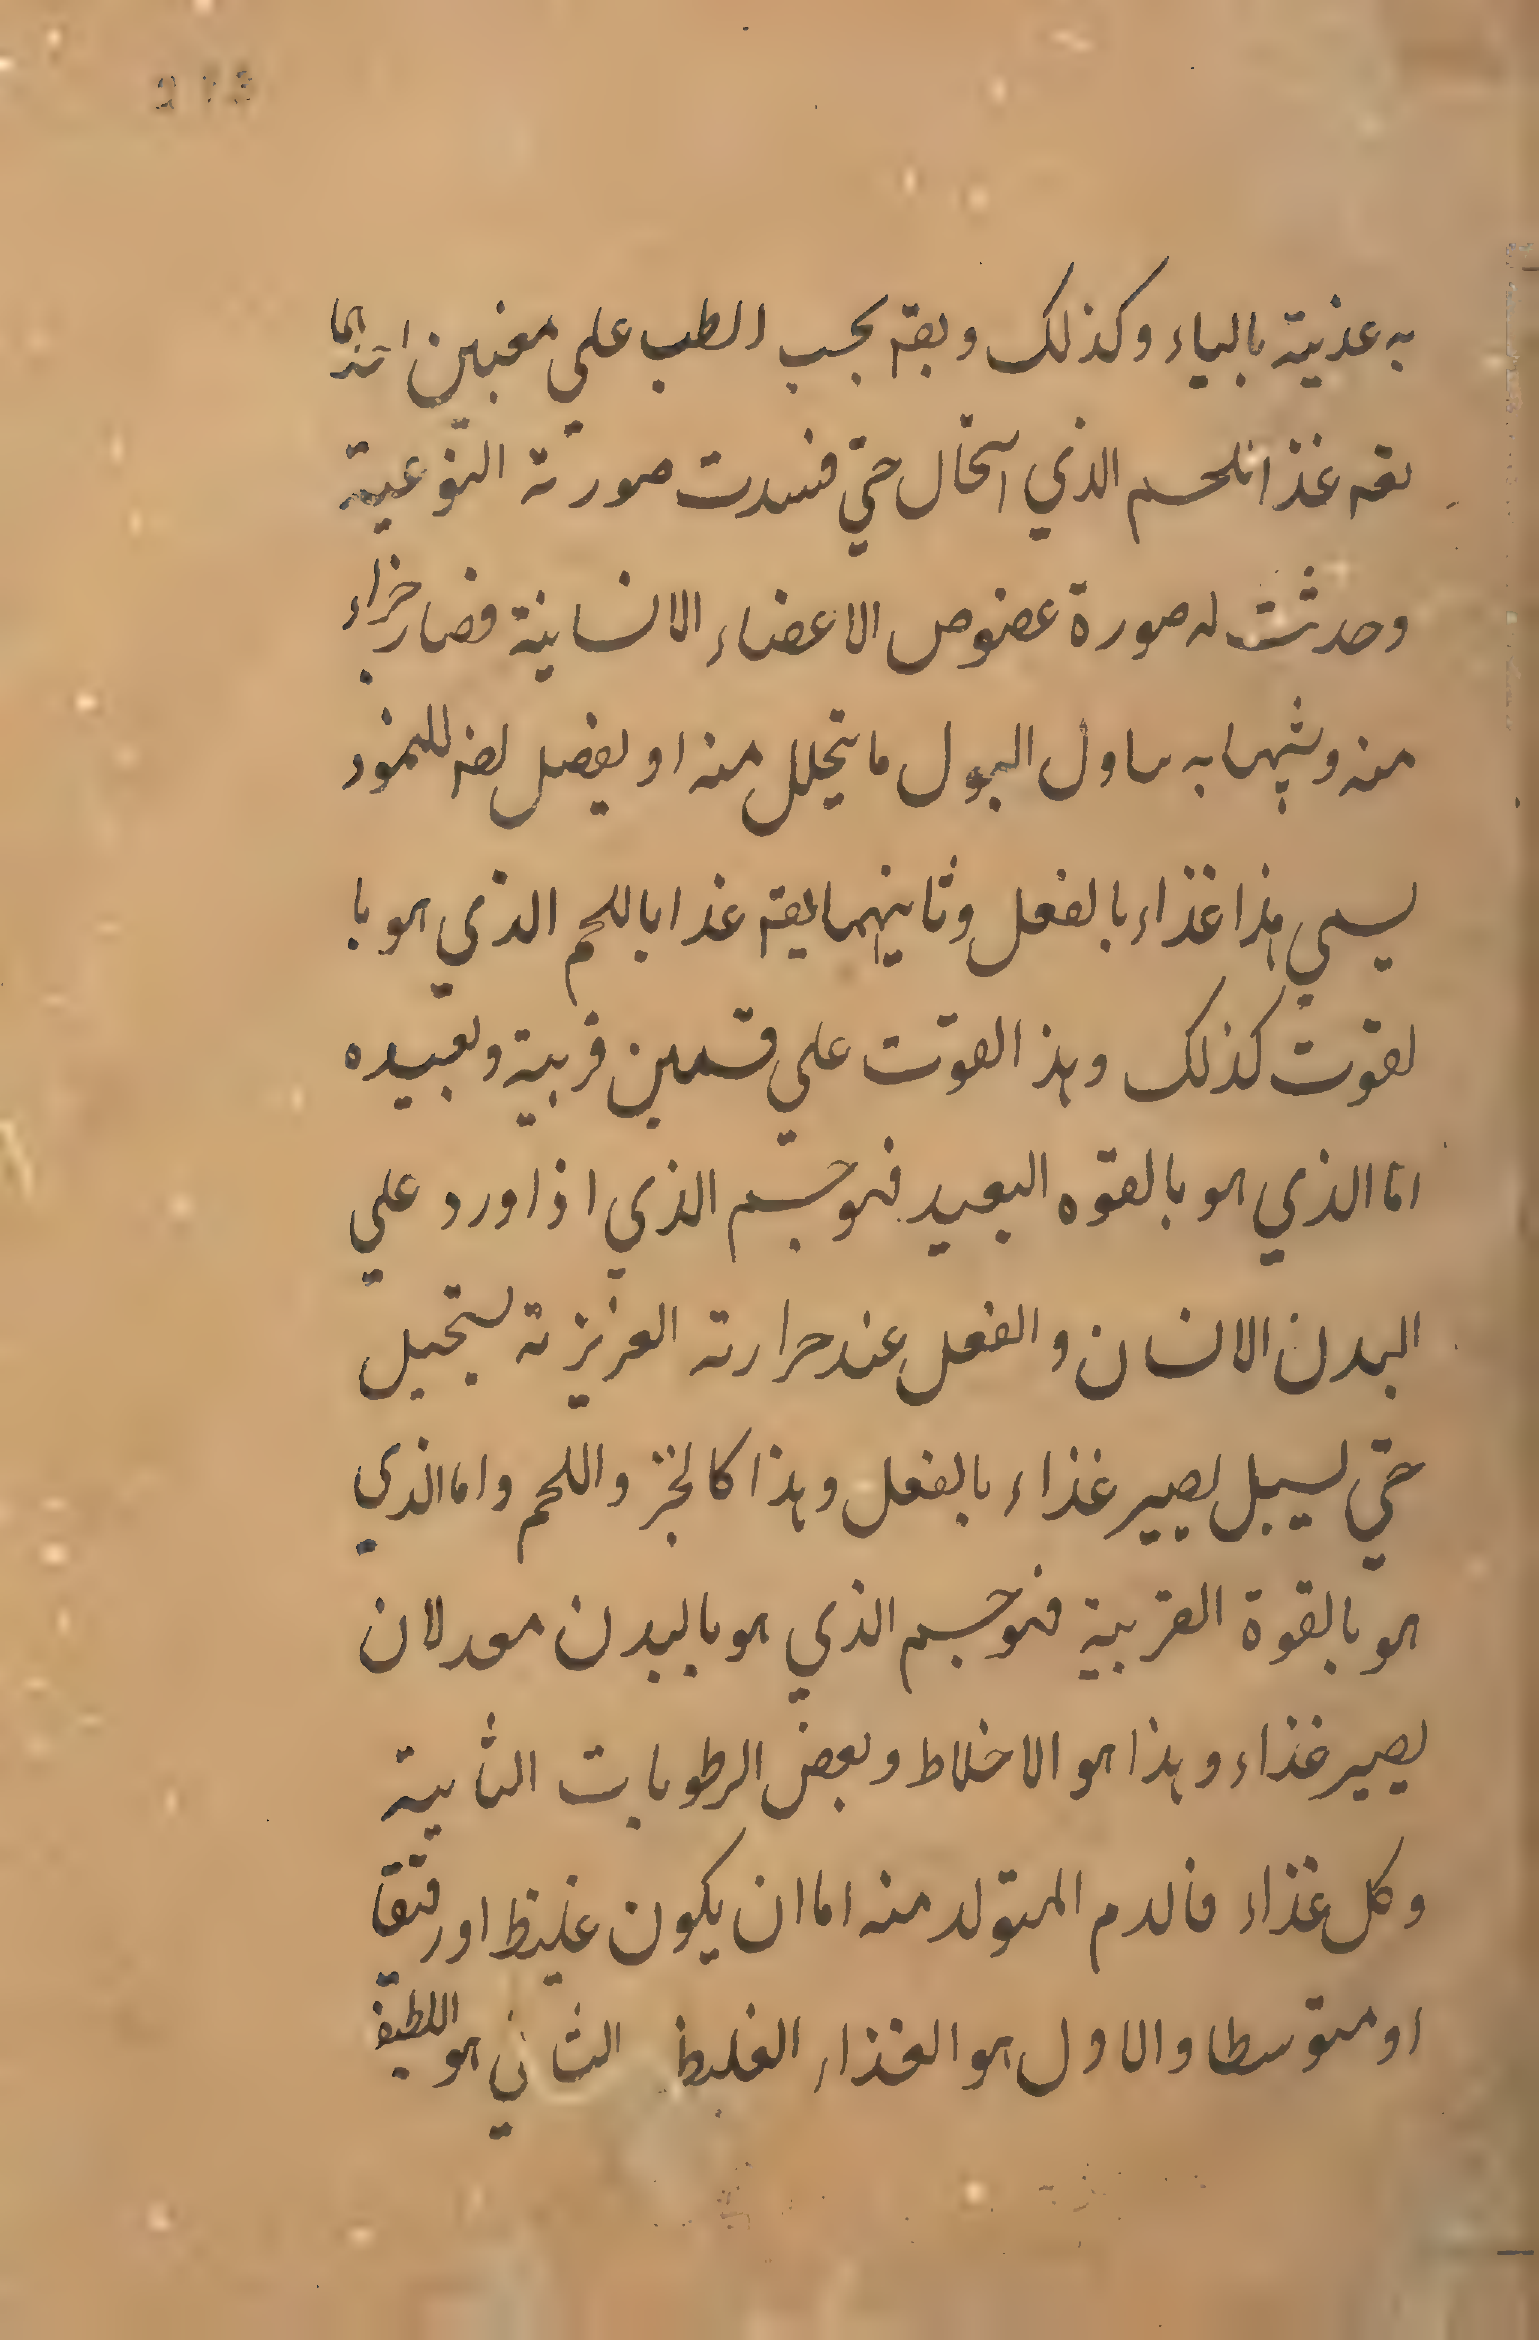 به عذيته بالياء وكذلك وبقه بحسب الطب علي معنيين
بقه غذا للحسم الذي استحال حتي فسدت صورته النوعية
وحدثت له صورة عضوص الاعضاء الانسانية فصار جزاء
منه وشبهابه ما يتحلل منه او يفضل
يسمي هذا غذاء بالفعل وثانيهما يقه غذا باللحم الذي هو با
لقوت كذلك وهذ القوت علي قسمين قريبة وبعيده
اما الذي هو بالقوه البعيد فهو جسم الذي اذا ورد علي
البدن الانسان والفعل عند حرارته العزيزته يستحيل
حتي يصير غذاء بالفعل وهذا كالخبز واللحم واما الذي
هو بالقوة القريبة فهو جسم الذي هو بالبدن معد لان
يصير غذاء وهذا هو الاخلاط وبعض الرطوبات الثانية
وكل غذاء فالدم المتولد منه اما ان يكون غليظ او رقيقا
او متوسطا والاول هو الغذاء الغليظ الثاني هو اللطيف